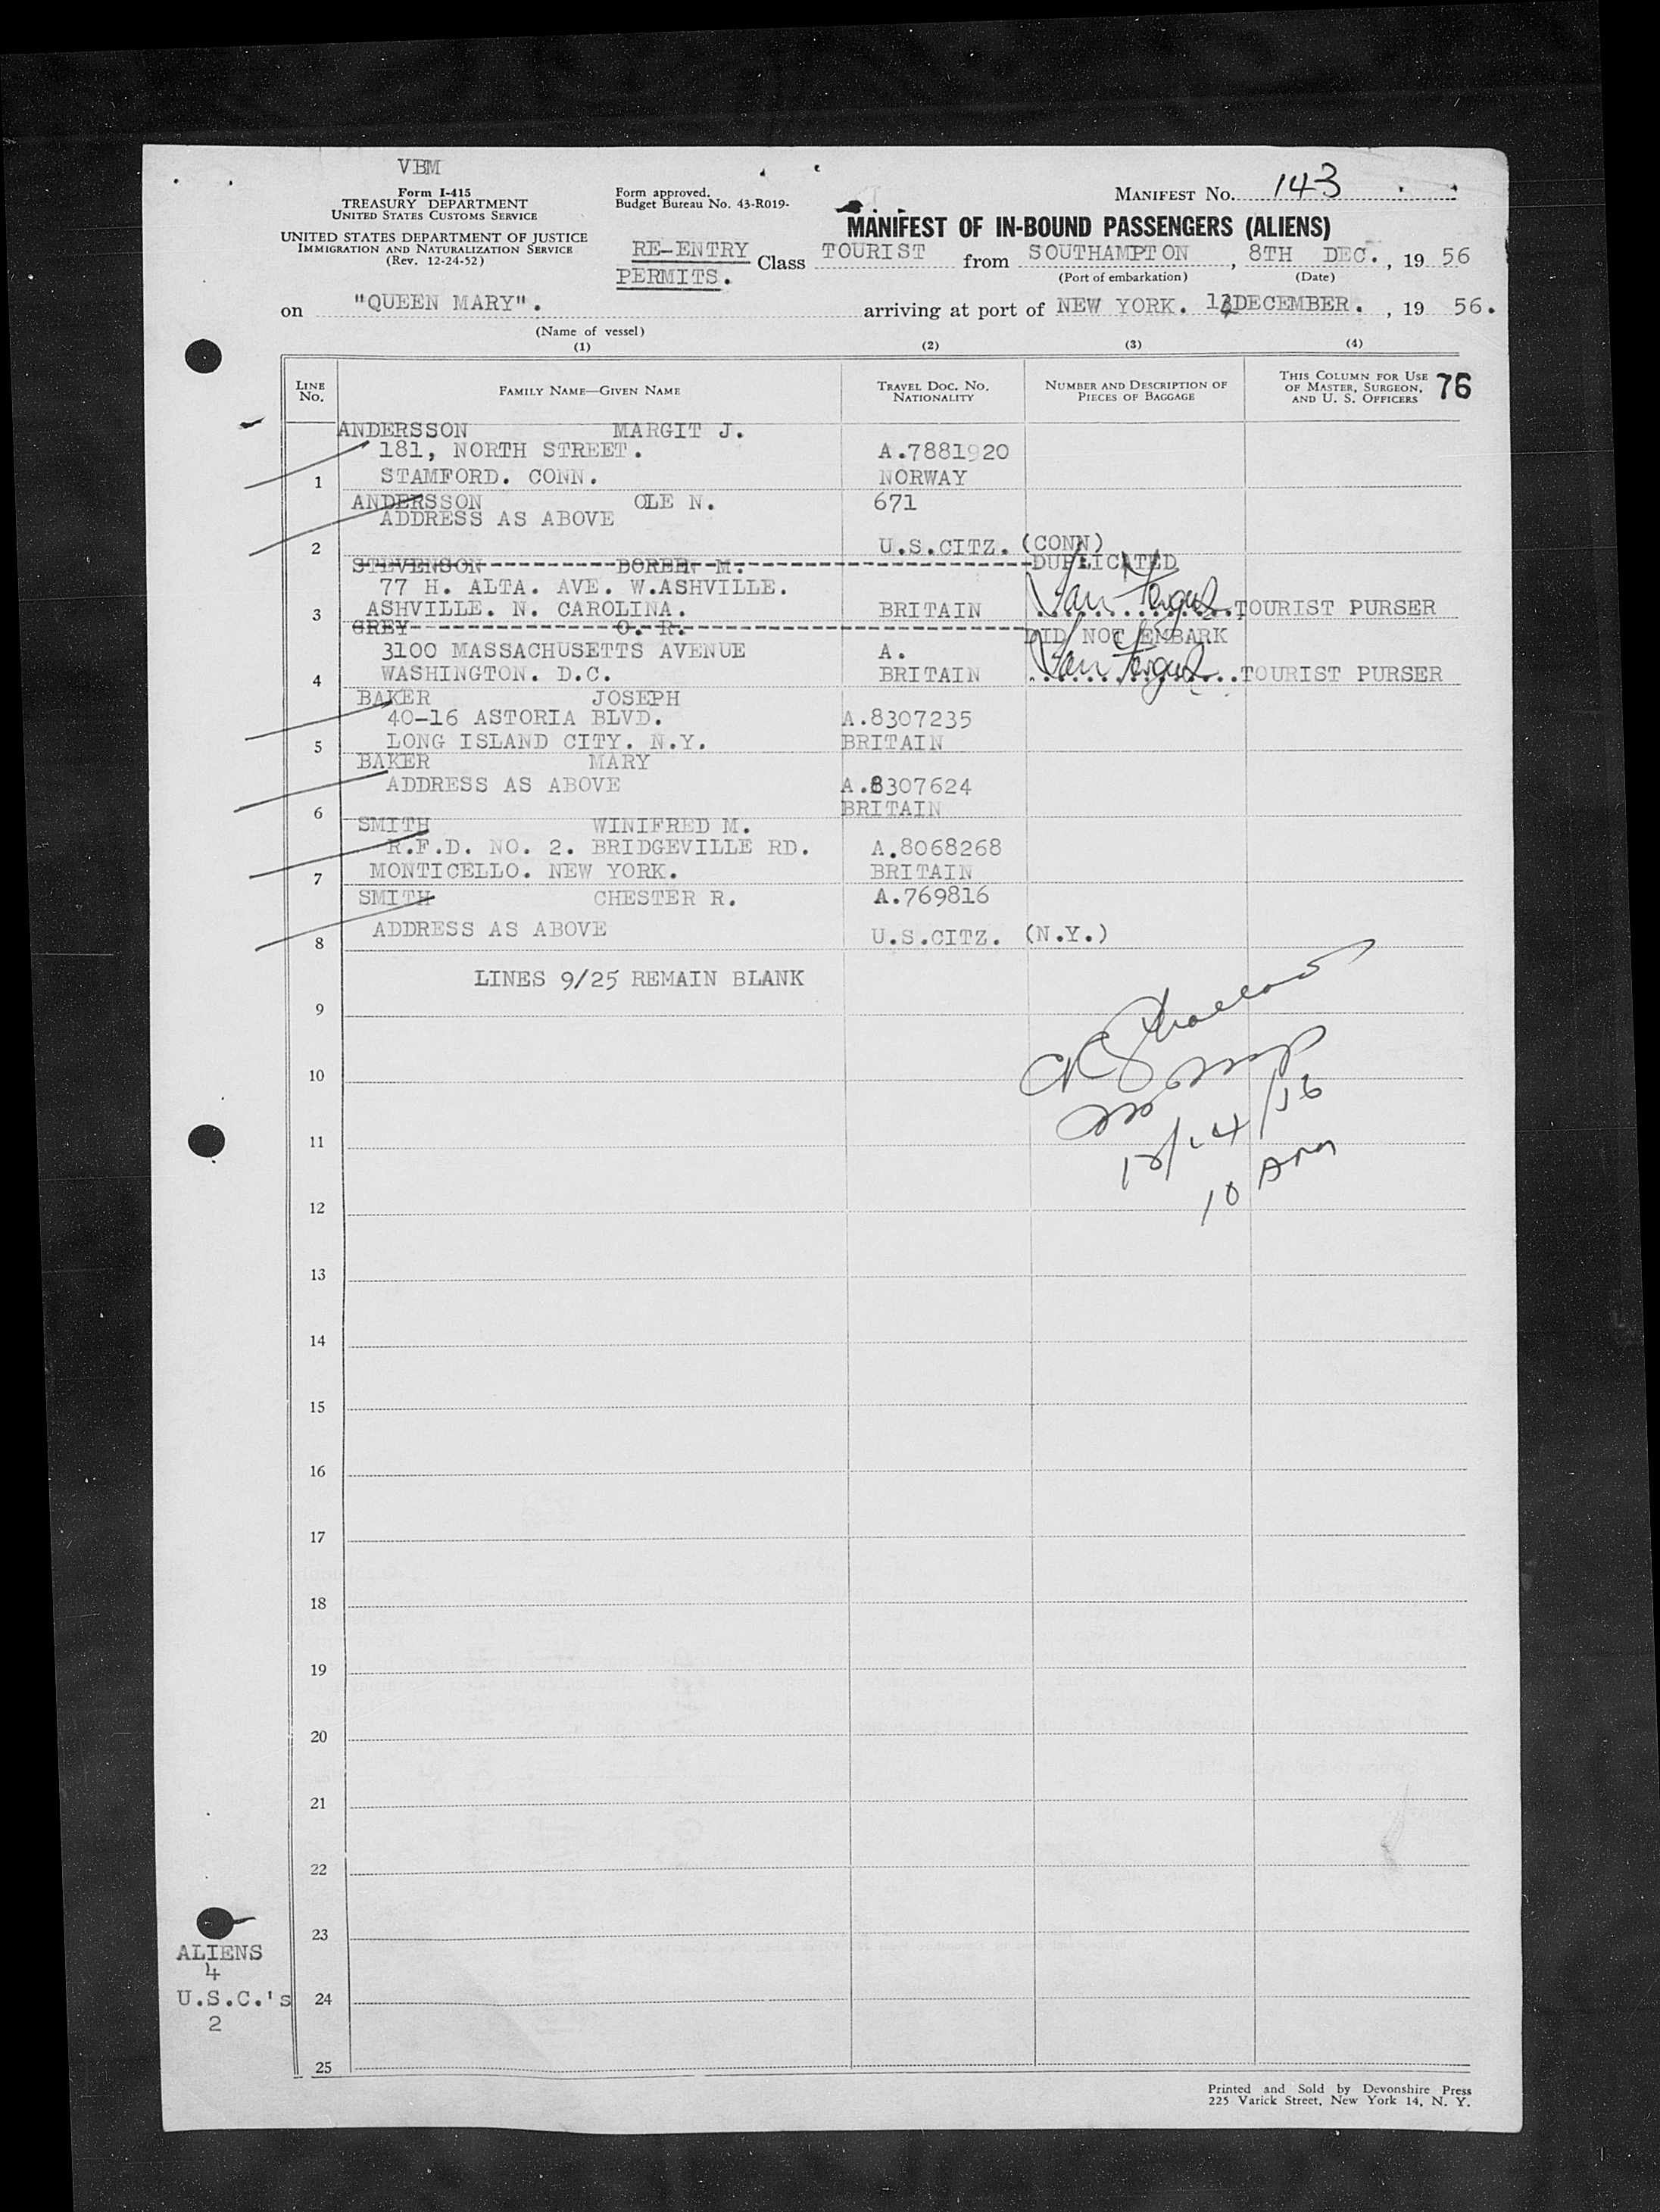 VBM
Form I-415
TREASURY DEPARTMENT
UNITED STATES CUSTOMS SERVICE
UNITED STATES DEPARTMENT OF JUSTICE
IMMIGRATION AND NATURALIZATION SERVICE
(Rev. 12-24-52)
Form approved.
Budget Bureau No. 43-R019-
MANIFEST No. 143
MANIFEST OF IN-BOUND PASSENGERS (ALIENS)
RE-ENTRY PERMITS. Class TOURIST from SOUTHAMPTON, 8TH DEC., 19 56
(Port of embarkation) (Date)
on "QUEEN MARY". arriving at port of NEW YORK. DECEMBER., 19 56.
(Name of vessel)
(1) (2) (3) (4)
LINE No. FAMILY NAME—GIVEN NAME TRAVEL DOC. No. NATIONALITY NUMBER AND DESCRIPTION OF PIECES OF BAGGAGE THIS COLUMN FOR USE OF MASTER, SURGEON, AND U. S. OFFICERS 76
ANDERSSON MARGIT J.
181, NORTH STREET. A.7881920
1 STAMFORD. CONN. NORWAY
ANDERSSON OLE N. 671
ADDRESS AS ABOVE
2 U.S.CITZ. (CONN)
STEVENSON DOREEN M. DUPLICATED
77 H. ALTA. AVE. W.ASHVILLE.
3 ASHVILLE. N. CAROLINA. BRITAIN TOURIST PURSER
GREY O. R. DID NOT EMBARK
3100 MASSACHUSETTS AVENUE A.
4 WASHINGTON. D.C. BRITAIN TOURIST PURSER
BAKER JOSEPH
40-16 ASTORIA BLVD. A.8307235
5 LONG ISLAND CITY. N.Y. BRITAIN
BAKER MARY
ADDRESS AS ABOVE A.8307624
6 BRITAIN
SMITH WINIFRED M.
R.F.D. NO. 2. BRIDGEVILLE RD. A.8068268
7 MONTICELLO. NEW YORK. BRITAIN
SMITH CHESTER R. A.769816
ADDRESS AS ABOVE
8 U.S.CITZ. (N.Y.)
LINES 9/25 REMAIN BLANK
9
10
11
12/14/56
10 Am
12
13
14
15
16
17
18
19
20
21
22
23
ALIENS
4
U.S.C.'s 24
2
25
Printed and Sold by Devonshire Press
225 Varick Street, New York 14, N. Y.